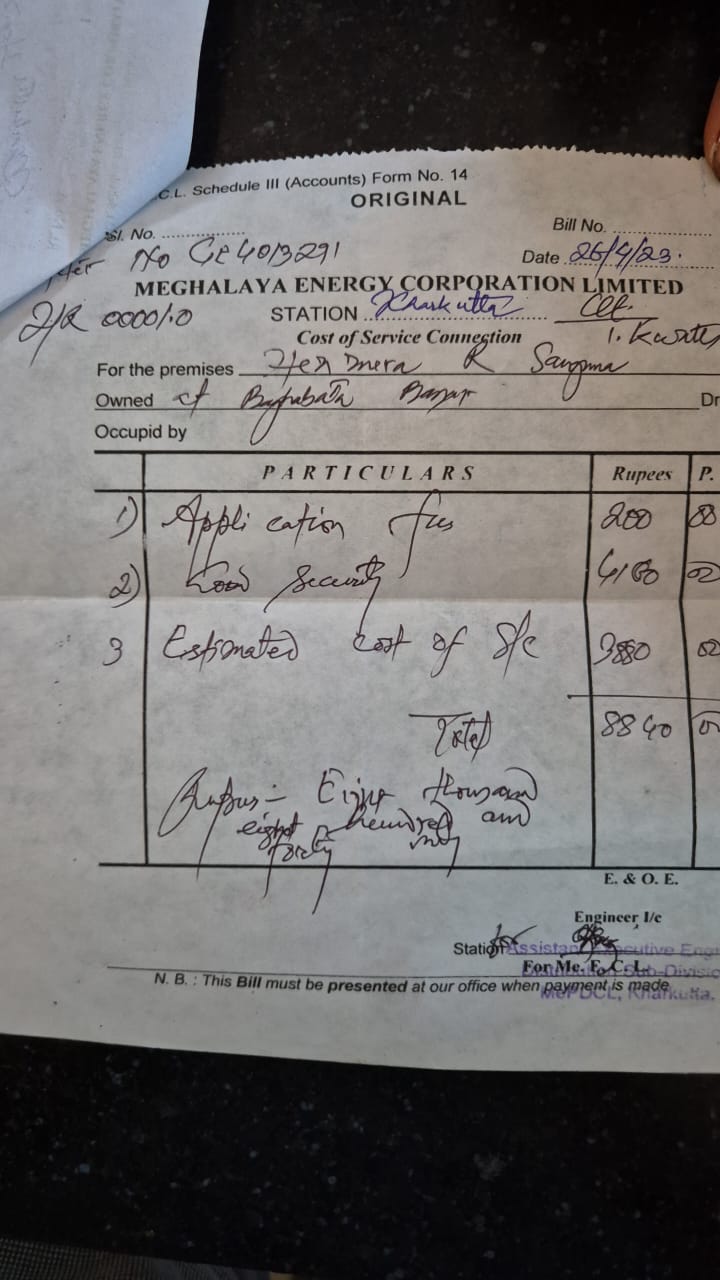 C.L. Schedule III (Accounts) Form No. 14
ORIGINAL
Sl. No. ..................
Bill No. ......................
No GE4013291
Date 26/4/23.
MEGHALAYA ENERGY CORPORATION LIMITED
00001.0
STATION Kharkutta
Cost of Service Connection
1. Kwatt
For the premises R Sangma
Owned at Baghabata Bazar
Dr
Occupid by
PARTICULARS Rupees P.
1) Application fees 200 00
2) Load Security
3 Estimated cost of S/c
Total 8840
Rupees - Eight thousand
eight hundred and
forty only
E. & O. E.
Engineer I/c
for
Station Assistant Executive Eng
For Me. E. C. L. Sub-Divisio
N. B. : This Bill must be presented at our office when payment is made
MePDCL, Kharkutta.